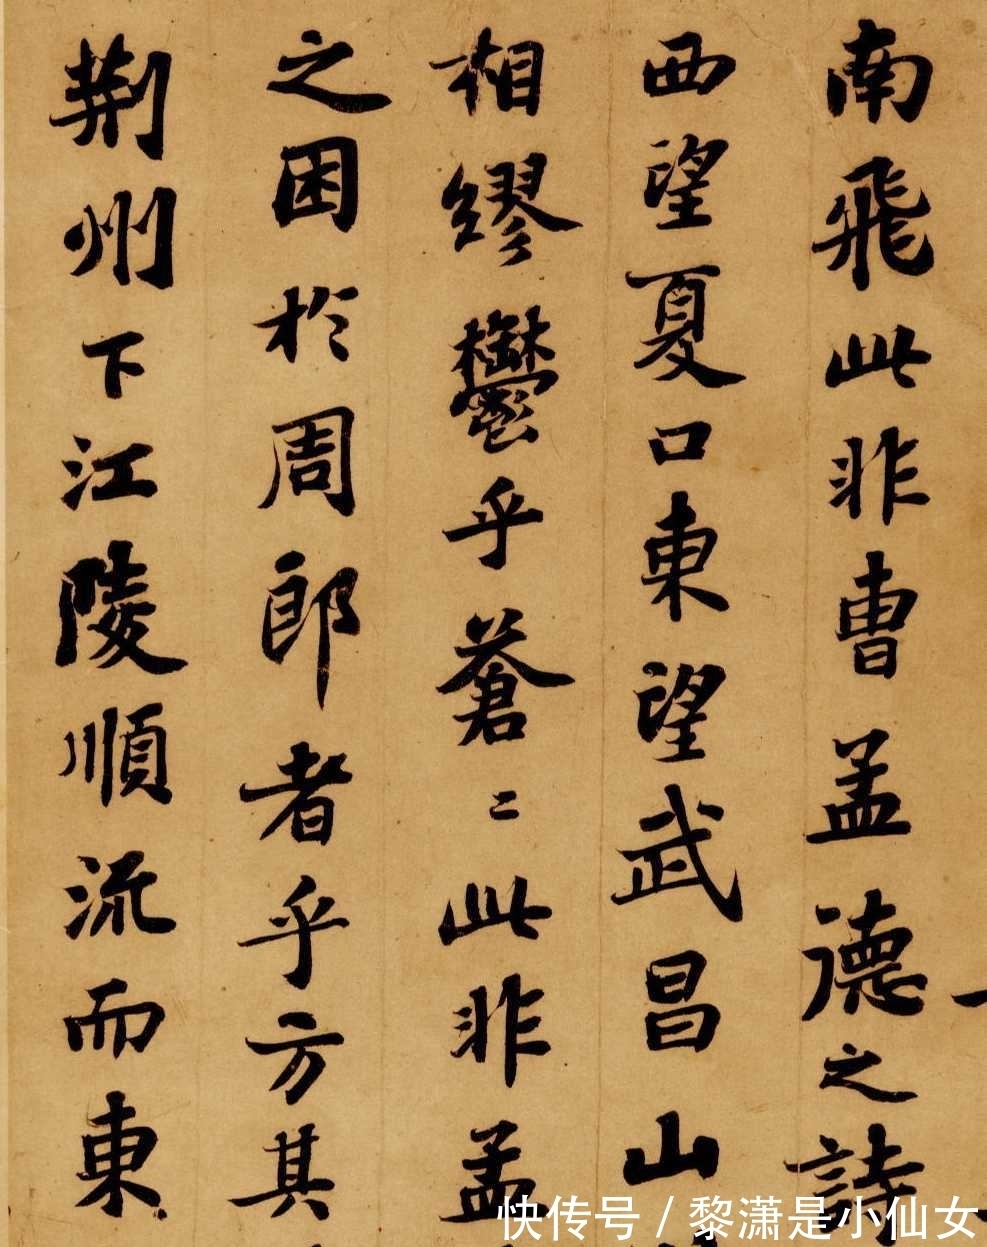 南飛此非曹孟德之詩
西望夏口東望武昌山
相繆鬱乎蒼〻此非孟
之困於周郎者乎方其
荆州下江陵順流而東
快传号 / 黎潇是小仙女